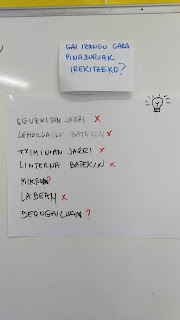 GAI IZANGO GARA
PINABURUAK
IREKITZEKO?
EGUZKITAN JARRI X
LEHORGAILU BATEKIN X
TXIMINIAN JARRI X
LINTERNA BATEKIN X
MIKROAN?
LABEAN X
BEROGAILUAN ?